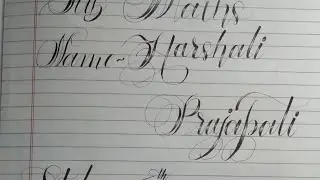 Maths
Name - Harshali
Prajapati